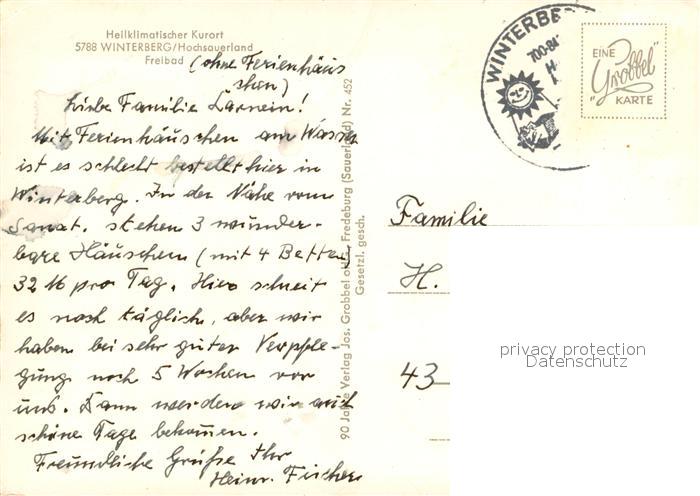 Heilklimatischer Kurort
5788 WINTERBERG/Hochsauerland
Freibad
(ohne Ferienhäus
chen)
Liebe Familie Larnein!
Mit Ferienhäuschen am Wasser
ist es schlecht bestellt hier in
Winterberg. In der Nähe vom
Sanat. stehen 3 wunder-
bare Häuschen (mit 4 Betten)
32 M pro Tag. Hier schneit
es noch täglich, aber wir
haben bei sehr guter Verpfle-
gung noch 5 Wochen vor
uns. Dann werden wir auch
schöne Tage bekommen.
Freundliche Grüße Ihr
Heinr. Fischer
90 Jahre Verlag Jos. Grobbel Fredeburg (Sauerland) Nr. 452
Gesetzl. gesch.
WINTERBE
700-
EINE
"Grobbel"
KARTE
Familie
H.
43
privacy protection
Datenschutz